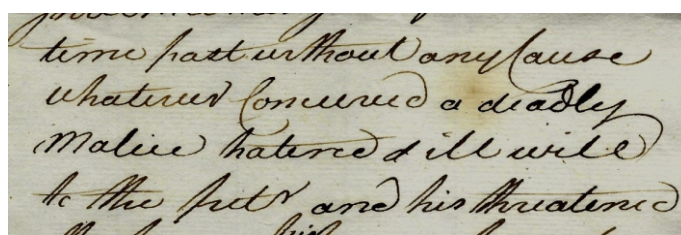 time past without any Cause
whatever Conceived a deadly
Malice hatered & ill will
to the petr and his threatened